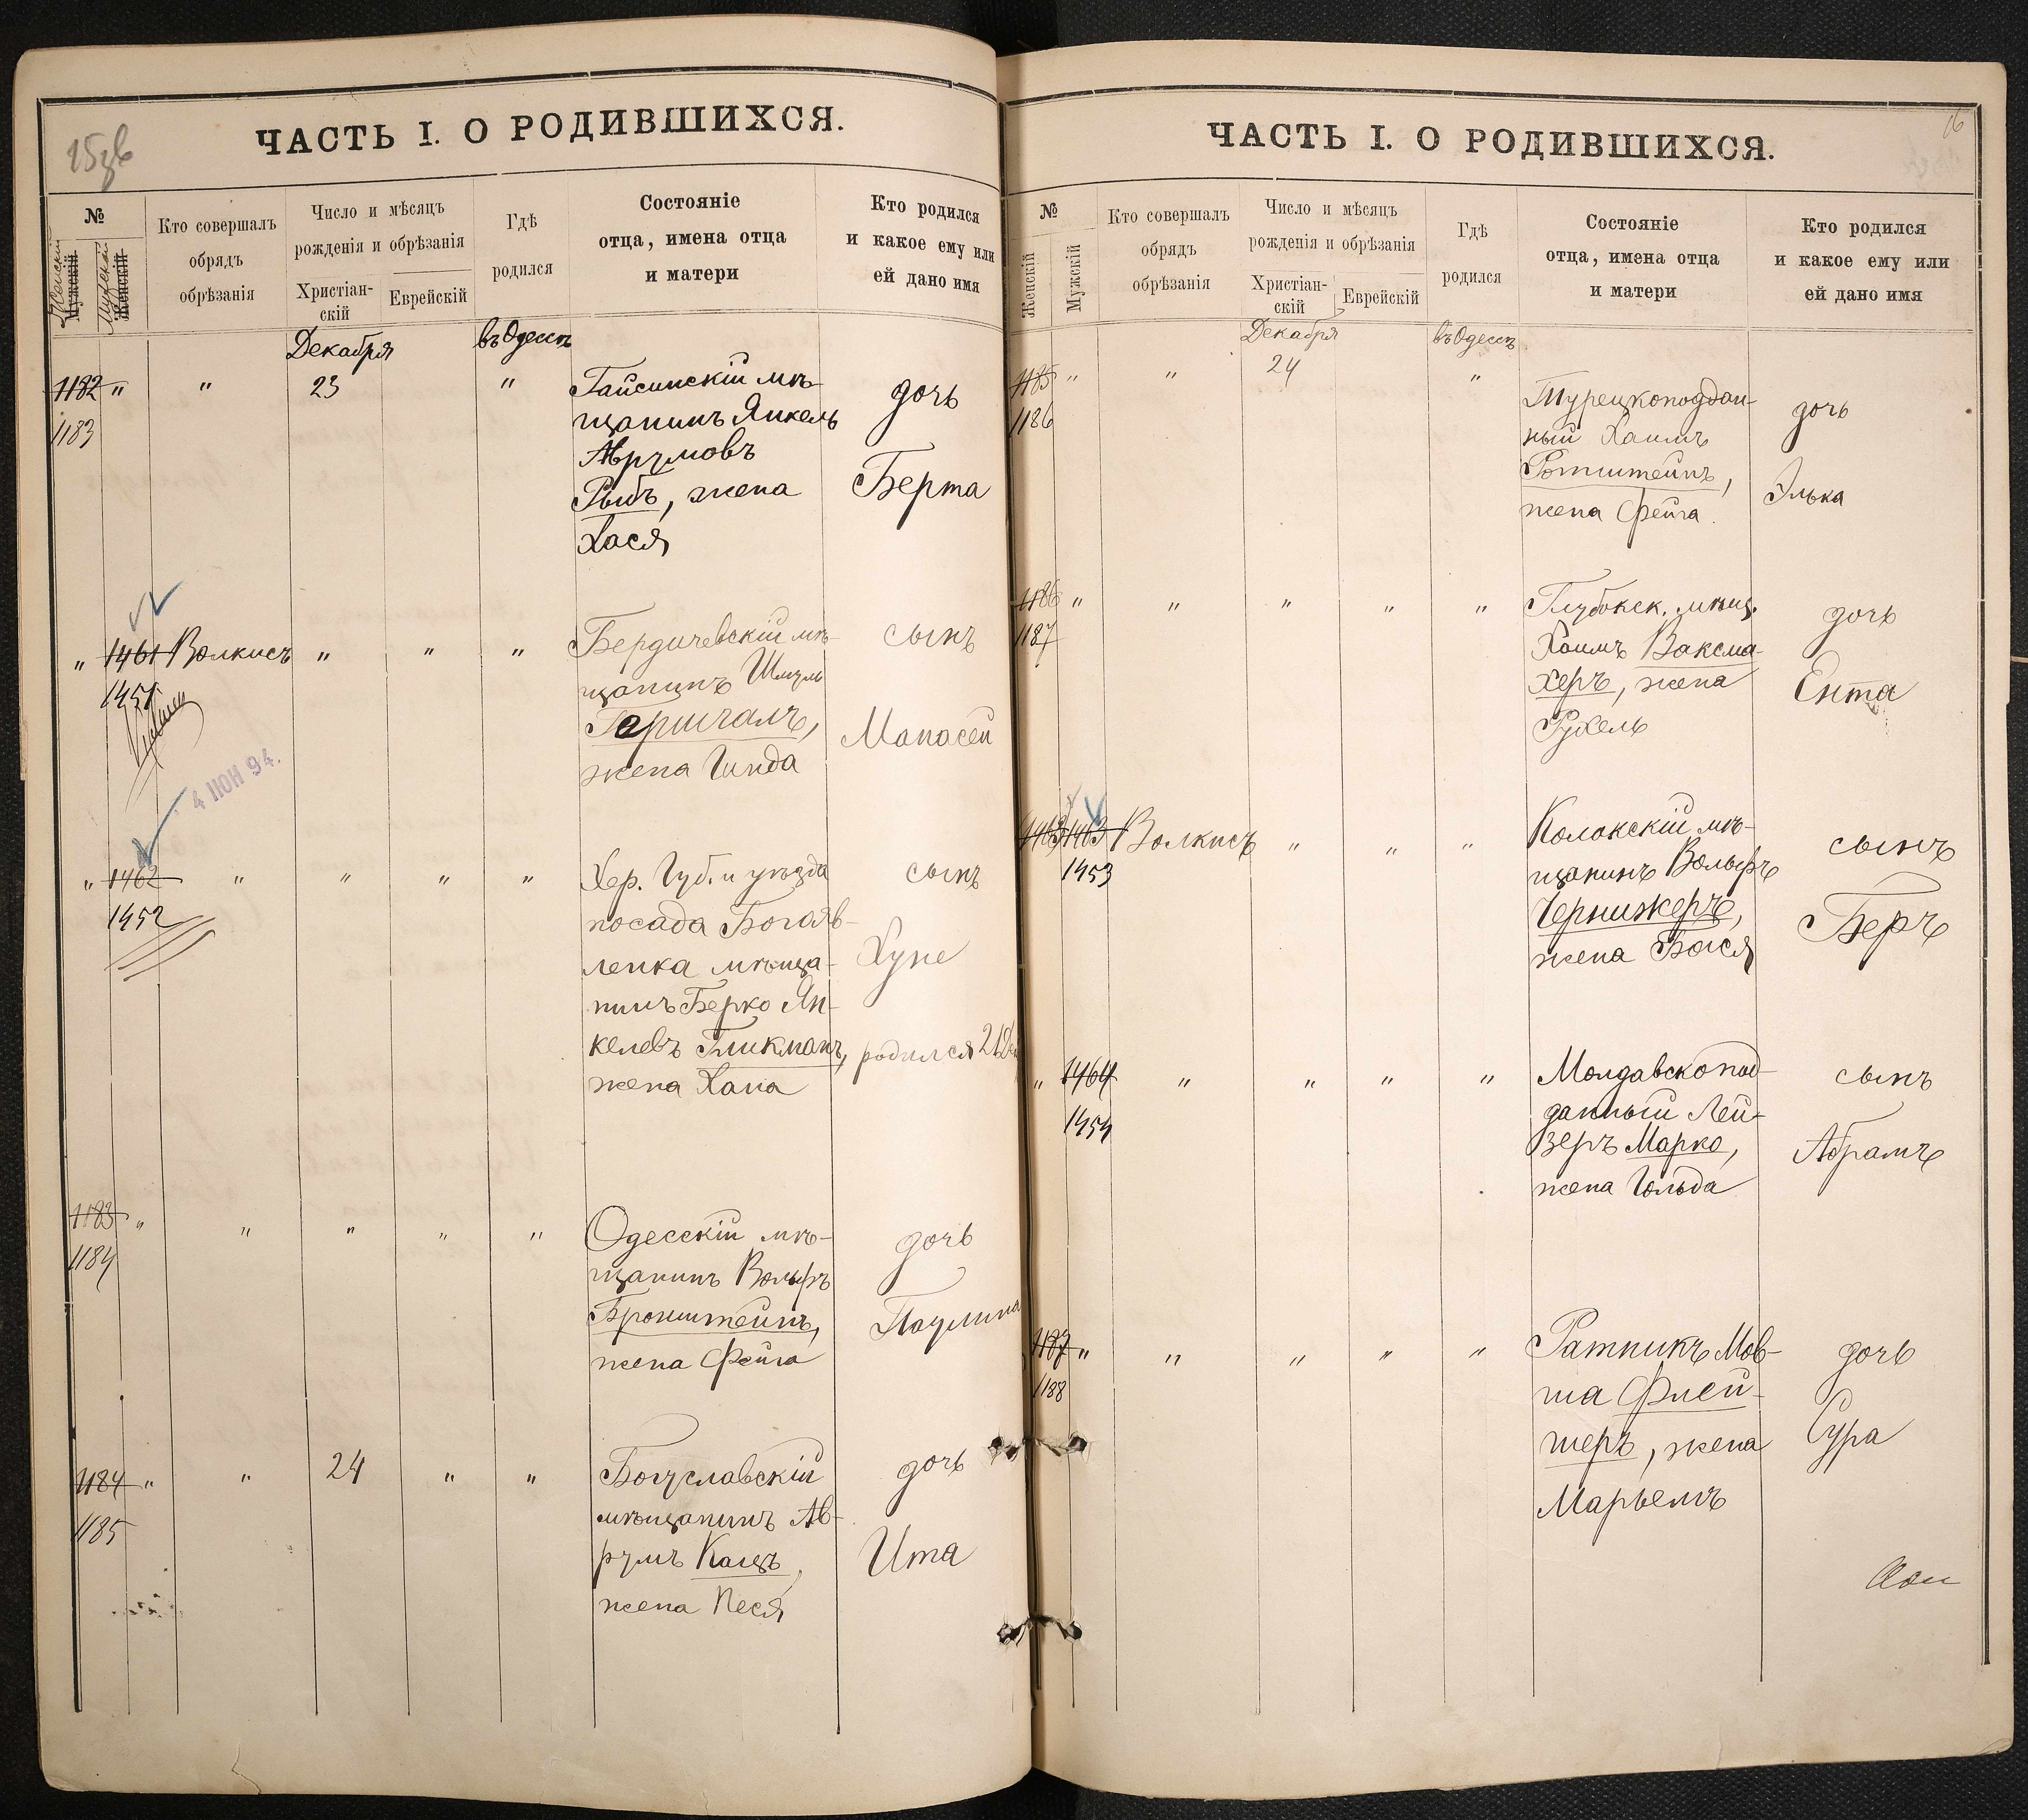 15зв
ЧАСТЬ I. О РОДИВШИХСЯ.
№
Женскій
Мужескій
Мужескій
Женскій
Кто совершалъ
обрядъ
обрѣзанія
Число и мѣсяцъ
рожденія и обрѣзанія
Христіан-
скій
Еврейскій
Гдѣ
родился
Состояніе
отца, имена отца
и матери
Кто родился
и какое ему или
ей дано имя
Декабря
въ Одессѣ
1182 " " 23 "
1183
Гайсинскій мѣ-
щанинъ Янкель
Аврумовъ
Рыбъ, жена
Хася
дочь
Берта
" 1461 Волкисъ " " "
1451
Бердичевскій мѣ-
щанинъ Шмуль
Гершгалъ,
жена Гинда
сынъ
Манасей
4 ІЮН 94.
" 1462 " " " "
1452
Хер. Губ. и уѣзда
посада Богояв-
ленка мѣща-
нинъ Берко Ян-
келевъ Гликманъ,
жена Хана
сынъ
Хуне
родился 21 Дек
1183 " " " " "
1184
Одесскій мѣ-
щанинъ Вольфъ
Бронштейнъ,
жена Фейга
дочь
Паулина
1184 " " 24 " "
1185
Богуславскій
мѣщанинъ Ав-
румъ Кацъ,
жена Песя
дочь
Ита
16
ЧАСТЬ I. О РОДИВШИХСЯ.
№
Женскій
Мужскій
Кто совершалъ
обрядъ
обрѣзанія
Число и мѣсяцъ
рожденія и обрѣзанія
Христіан-
скій
Еврейскій
Гдѣ
родился
Состояніе
отца, имена отца
и матери
Кто родился
и какое ему или
ей дано имя
Декабря
въ Одессѣ
1185 " " 24 "
1186
Турецкоподдан-
ный Хаимъ
Ротштейнъ,
жена Фейга.
дочь
Элька
1186 " " " " "
1187
Глубокск. мѣщ.
ХаимъВаксма-
херъ, жена
Рухель
дочь
Ента
1463 1463 Волкисъ " " "
1453
мѣ-
щанинъ Вольфъ
жена Бася
сынъ
Беръ
" 1464 " " " "
1454
Молдавскопод-
данный Лей-
зеръ Марко,
жена Гольда
сынъ
Абрамъ
1187 " " " " "
1188
Ратникъ Мов-
ша Флей-
шеръ, жена
Марьемъ
дочь
Сура